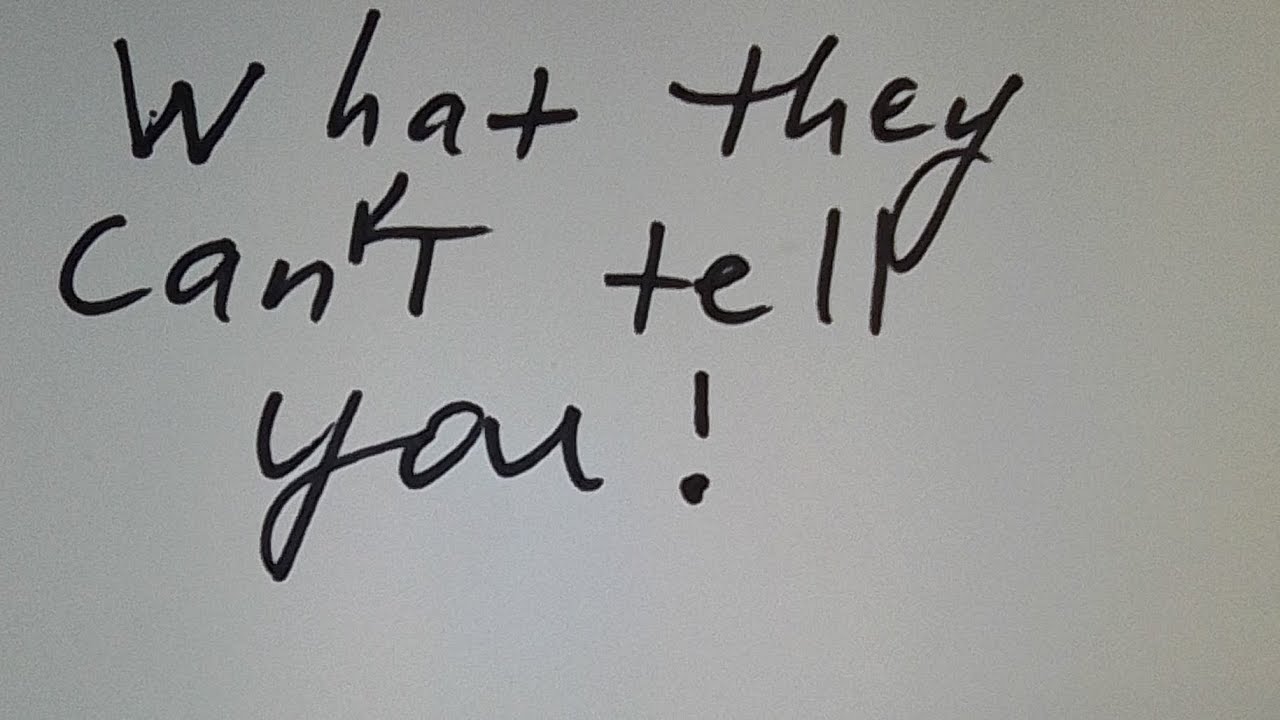 What they
Can't tell
you!